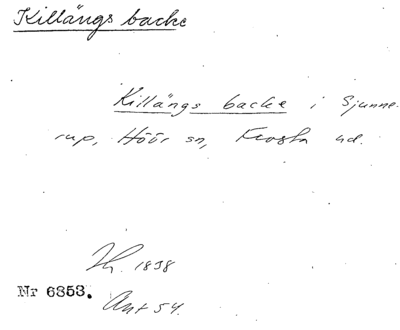 Killängs backe
Killängs backe i Sjunne-
rup, Höör sn, Frosta hd.
Th. 1838
Nr 6353.
Ant 54.